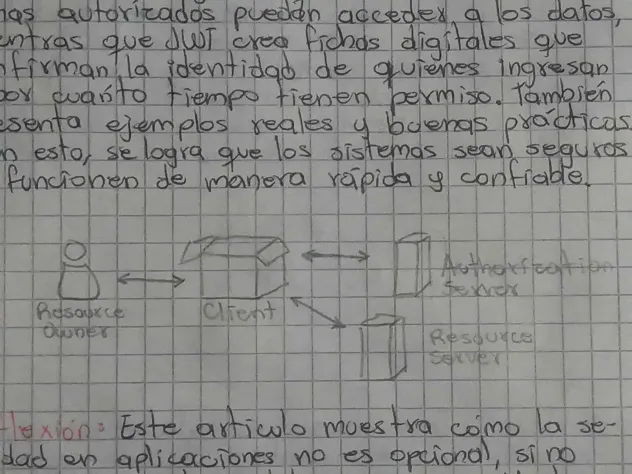 nas autorizados puedan acceder a los datos,
entras que JWT crea fichas digitales que
firman la identidad de quienes ingresan
por cuanto tiempo tienen permiso. También
esenta ejemplos reales y buenas prácticas.
n esto, se logra que los sistemas sean seguros
funcionen de manera rápida y confiable.
Resource Owner
Client
Authorization Server
Resource Server
flexión: Este articulo muestra cómo la se-
dad en aplicaciones no es opcional, si no